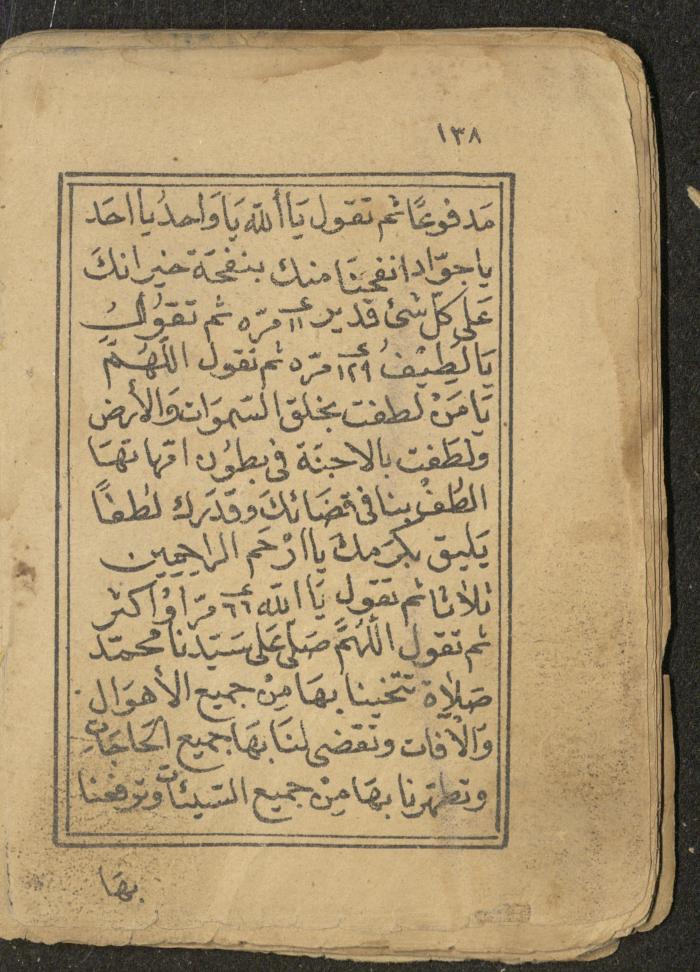 ١٣٨
مَدفوعًا ثم تقول يَا أللّه يَا وَاحدُ يا احَد
ياجوّاد انفحنَا منك بنفحَة خير انكَ
عَلى كل شئ قدير ١١ مرّه ثم تقوُل
يَا لَطِيْفُ ١٢٩ مرّه ثم تقول اللهُمَّ
يَا مَنْ لطفت بخلق السّموَات وَالأرض
ولَطَفت بالاجنّة في بطوُن امّهاتهَا
الطُفْ بنا في قضَائكَ وقدَرك لطفًا
يَليق بكرَمكَ يا ارْحَم الراحِمِين
ثلاثا ثم تقول يَا اللّه ٦٦ مرّا وْاكثر
ثم تقول اللّهُمَّ صَلى عَلى سَيّدنا محمّد
صَلاة تنْجينا بهَا مِنْ جميع الأهوَال
وَالآفات وتقضى لنَا بهَا جَميع الحَاجَاتِ
وتطهّرنا بهَا مِنْ جميع السّيئات وترفعنا
بهَا